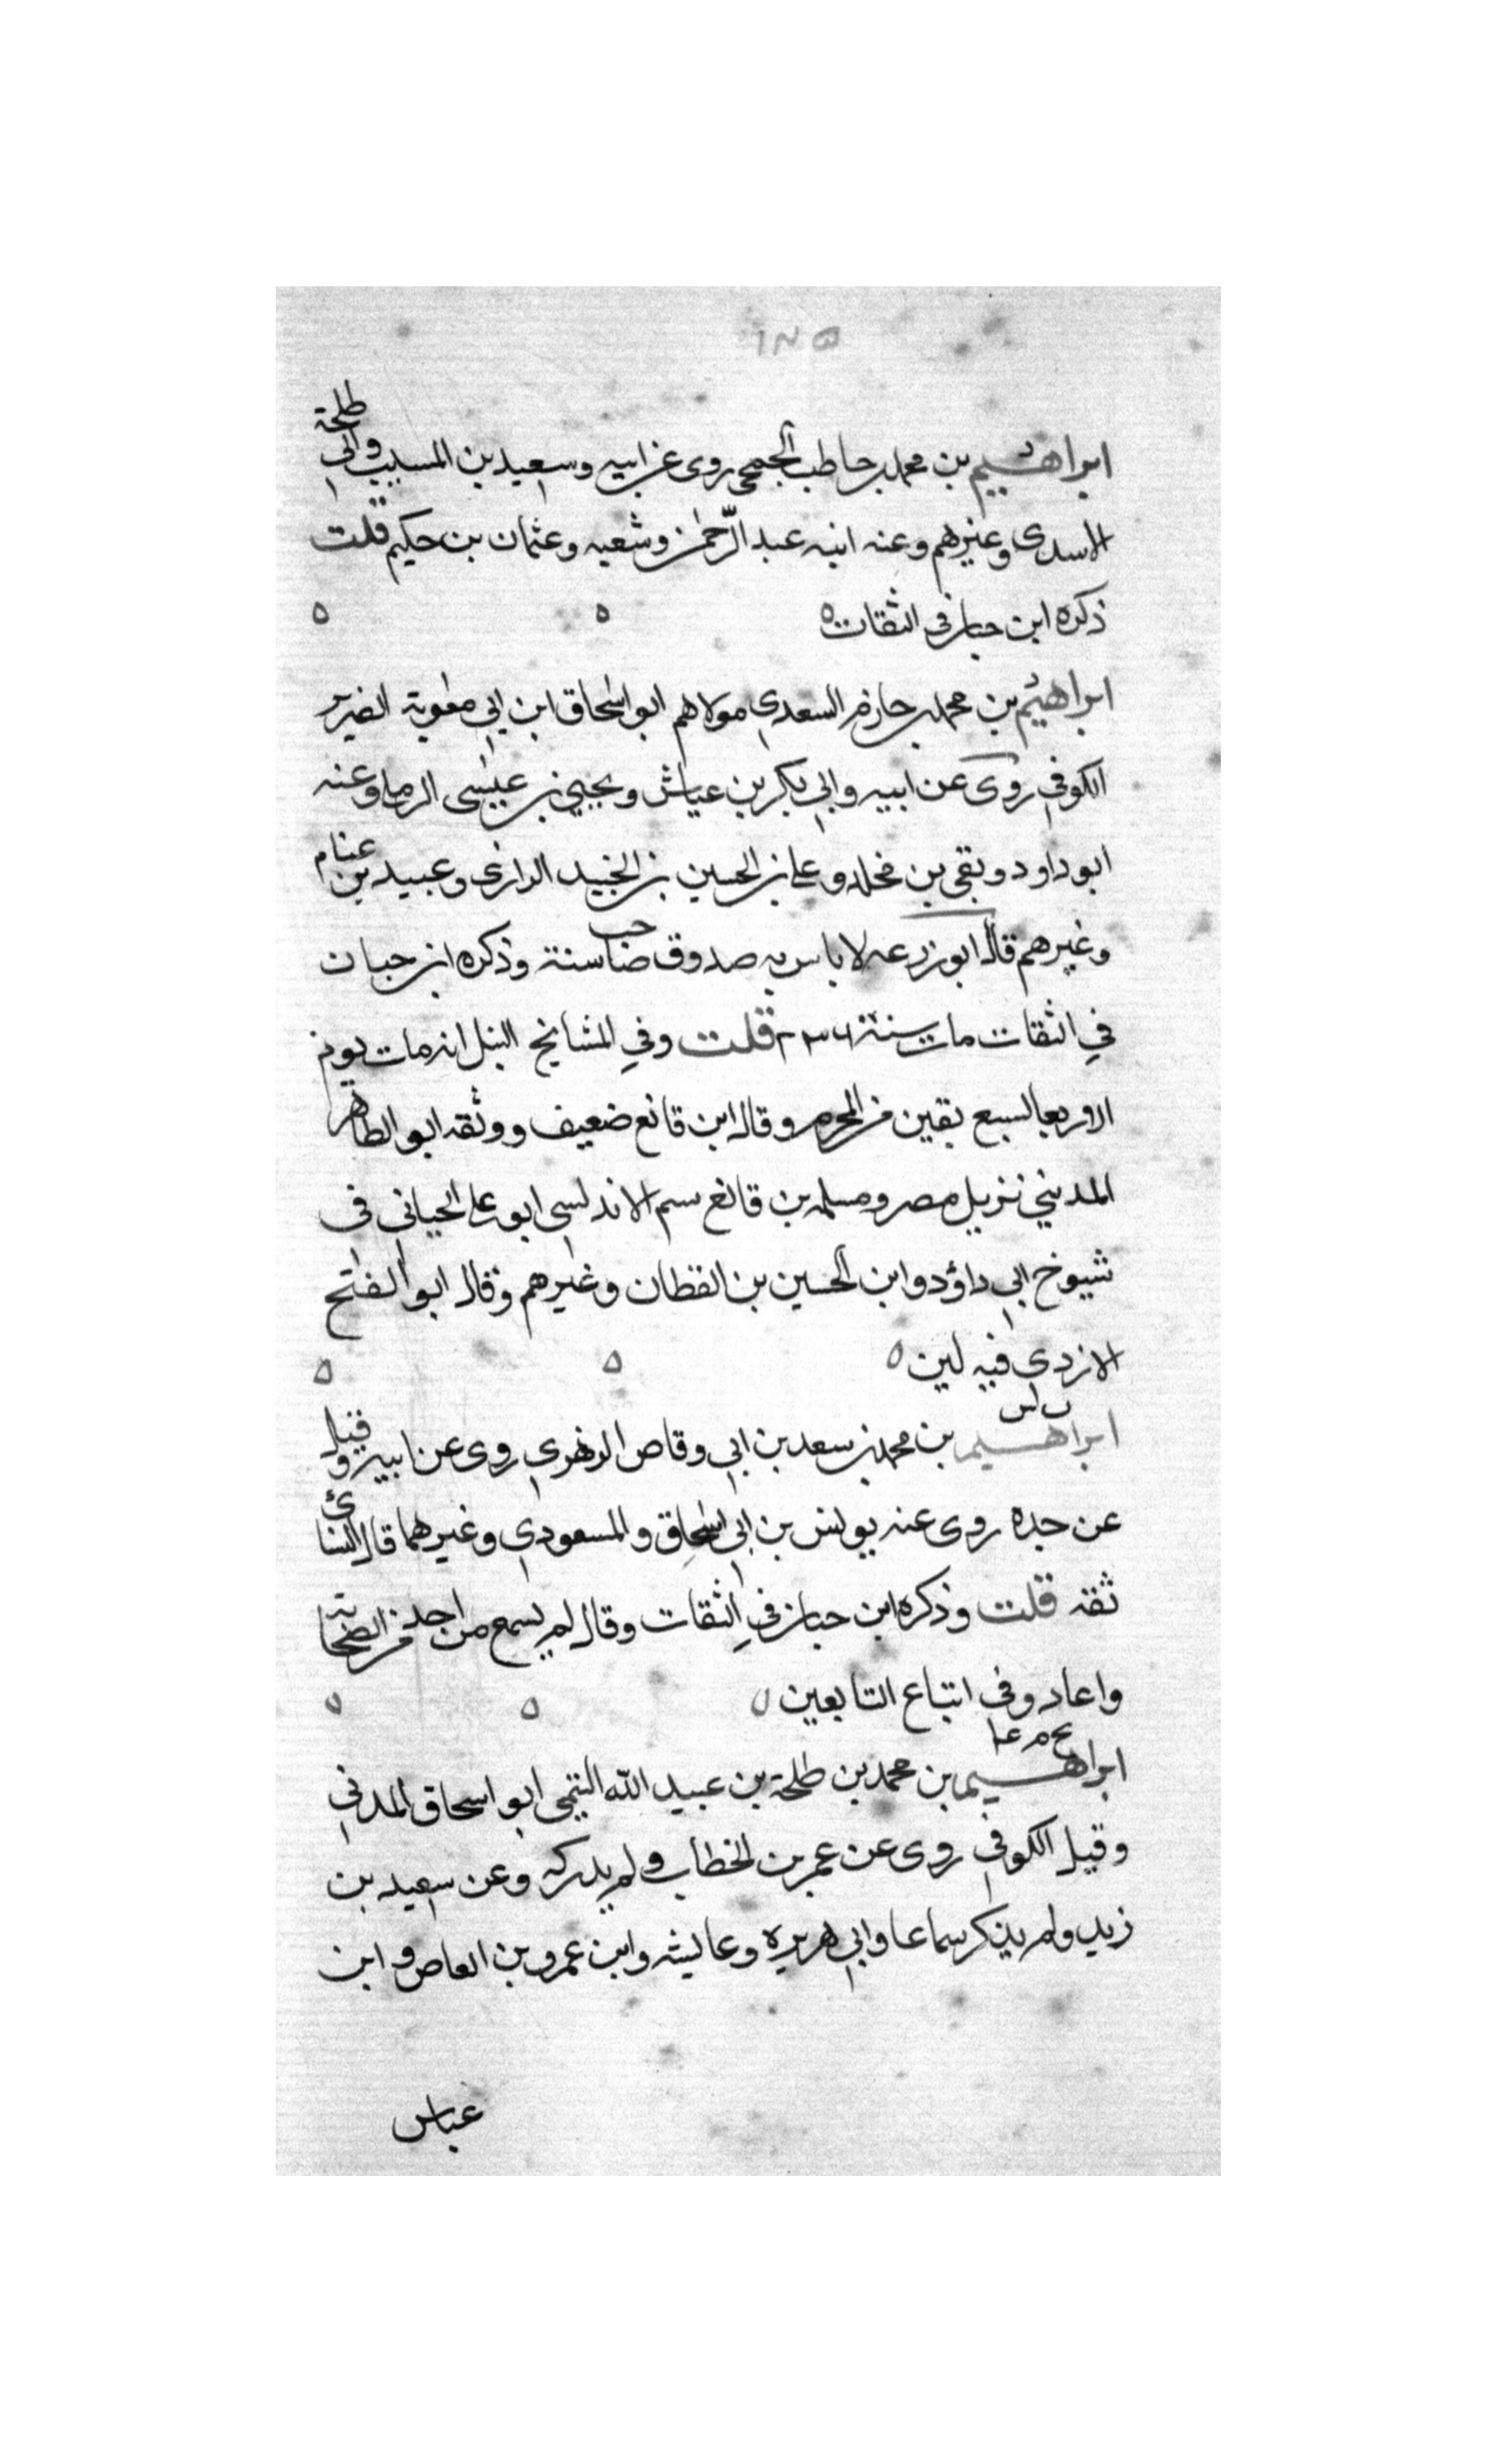 ١٢٥
ابراهيم بن محمد بن حاطب الجمحي روى عن ابيه وسعيد بن المسيب وابي طلحة
الاسدى وغيرهم وعنه ابنه عبد الرحمن وشعبه وعثمان بن حكيم قلت
ذكره ابن حبان في الثقات ه ه ه
د
ابراهيم بن محمد بن حازم السعدي مولاهم ابو اسحاق ابن ابي معوية الضرير
الكوفي روى عن ابيه وابي بكر بن عياش ويحيي بن عيسى الرملى وعنه
ابو داود وبقي بن مخلد وعلى بن الحسين بن الجنيد الرازى وعبيد بن غنام
وغيرهم قال ابو زرعه لا باس به صدوق صاحب سنة وذكره ابن حبان
في الثقات مات سنة ٢٣٦ قلت وفي المشايخ النبل انه مات يوم
الاربعا لسبع بقين من المحرم وقال ابن قانع ضعيف ووثقه ابو الطاهر
المديني نزيل مصر ومسلمه بن قاسم الاندلسي ابو على الجياني في
شيوخ ابي داؤد وابن الحسين بن القطان وغيرهم وقال ابو الفتح
الازدي فيه لين ه ه ه
ت س
ابراهيم بن محمد بن سعد بن ابي وقاص الزهري روى عن ابيه وقيل
عن جده روى عنه يونس بن ابي اسحاق والمسعودي وغيرهما قال النسائ
ثقه قلت وذكره ابن حبان في الثقات وقال لم يسمع من احد من الصحابة
واعاده في اتباع التابعين ه ه ه
بخ م عا
ابراهيم بن محمد بن طلحة بن عبيد الله التيمي ابو اسحاق المدني
وقيل الكوفي روى عن عمر بن الخطاب ولم يدركه وعن سعيد بن
زيد ولم يذكر سماعا وابي هريره وعايشه وابن عمرو بن العاص وابن
عباس